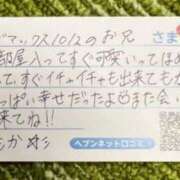 マックス10/2のお兄
部屋入ってすぐ可愛いってほめ
て、すぐイチャイチャも出来てもが
っぱい幸せだったよまた会い
来てね!!
もか
さま
ヘブンネット口コミ!